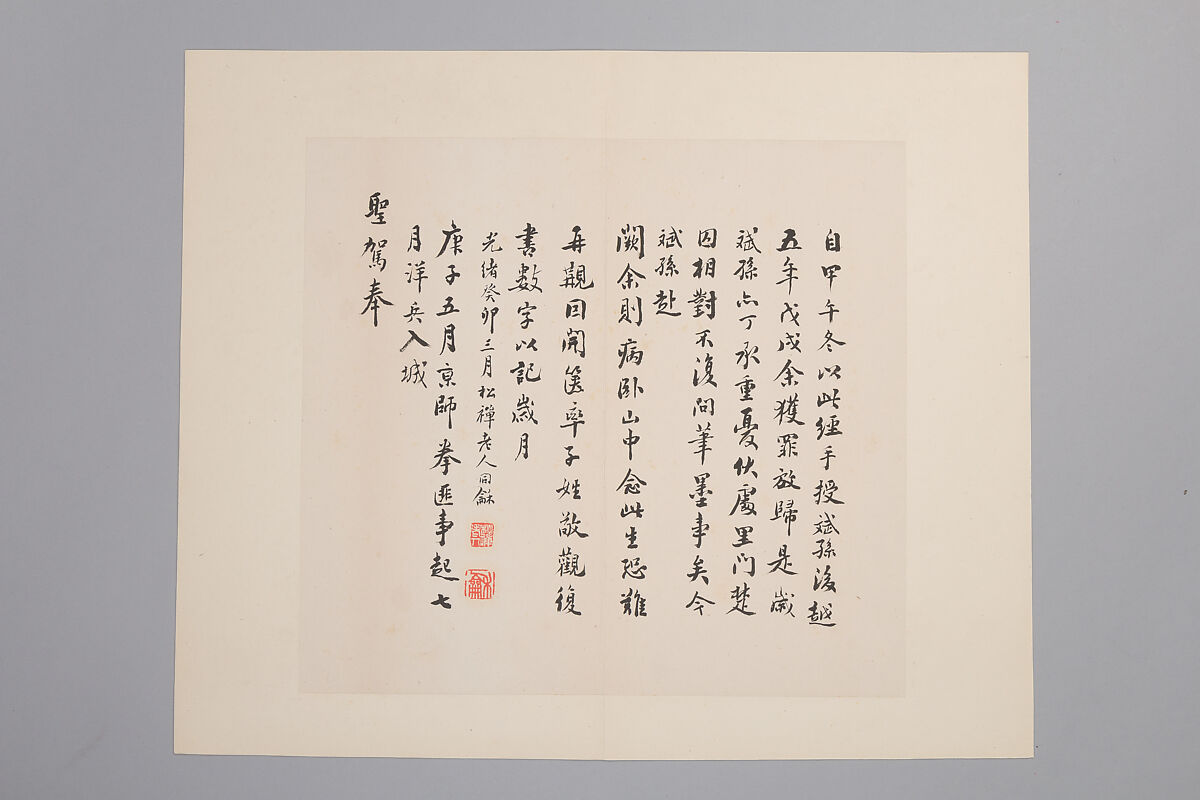 自甲午冬以此經手授斌孫後越
五年戊戌余獲罪放歸是歲
斌孫亦丁承重憂伏處里門楚
囚相對不復問筆墨事矣今
斌孫赴
闕余則病臥山中念此生恐難
再覯因開篋率子姓敬觀復
書數字以記歲月
光緒癸卯三月松禪老人同龢
庚子五月京師拳匪事起七
月洋兵入城
聖駕奉